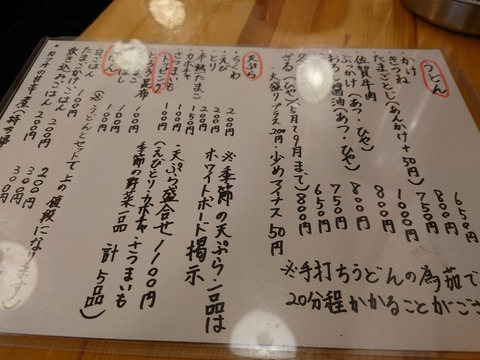 うどん
かけ 650円
きつね 750円
たまごとじ(あんかけ+50円) 800円
佐賀牛肉 1000円
ぶっかけ(あつ・ひや) 800円
醤油(あつ・ひや) 750円
650円
ざる(ひや)(5月〜9月まで) 800円
・大盛りプラス200円・少なめマイナス50円
※手打ちうどんの為茹で
20分程かかることがござ
天ぷら
・ちくわ 200円
・とり 200円
・えび 200円
・半熟たまご 150円
・カボチャ 100円
・さつまいも 100円
※季節の天ぷら一品は
ホワイトボード掲示
・天ぷら盛合せ1100円
(えび・とり・カボチャ・さつまいも
季節の野菜一品 計5品)
トッピング
とろろ昆布 100円
100円
100円
ごはん
(※うどんとセットで上の値段になります)
白ごはん 100円
たまごかけごはん 200円 300円
炊き込みごはん 200円 300円